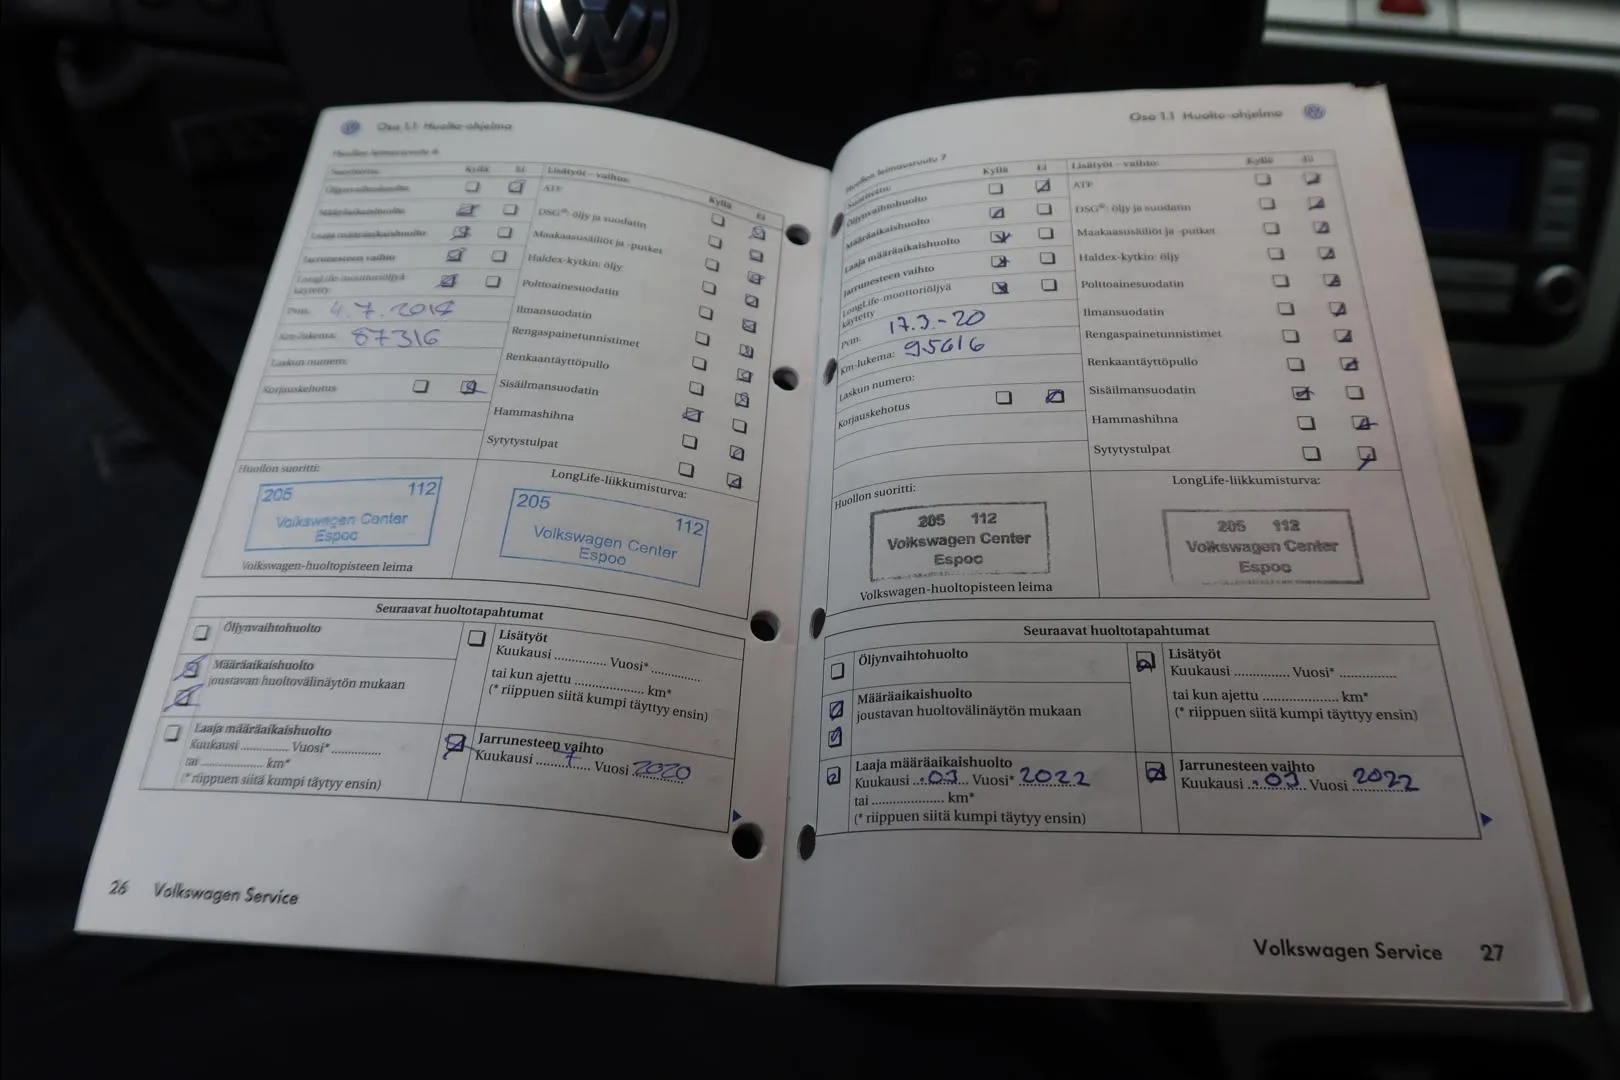 Osa 1.1 Huolto-ohjelma
Huollon leimausruutu 6
Suoritettu: Kyllä Ei
Öljynvaihtohuolto
Määräaikaishuolto
Laaja määräaikaishuolto
Jarrunesteen vaihto
LongLife-moottoriöljyä
käytetty
Pvm.
Km-lukema: 87316
Laskun numero:
Korjauskehotus
Lisätyöt – vaihto: Kyllä Ei
ATF
DSG®: öljy ja suodatin
Maakaasusäiliöt ja -putket
Haldex-kytkin: öljy
Polttoainesuodatin
Ilmansuodatin
Rengaspainetunnistimet
Renkaantäyttöpullo
Sisäilmansuodatin
Hammashihna
Sytytystulpat
Huollon suoritti:
205 112
Volkswagen Center
Espoo
Volkswagen-huoltopisteen leima
LongLife-liikkumisturva:
205 112
Volkswagen Center
Espoo
Seuraavat huoltotapahtumat
Öljynvaihtohuolto
Määräaikaishuolto
joustavan huoltovälinäytön mukaan
Laaja määräaikaishuolto
Kuukausi .............. Vuosi* ..............
tai ...................... km*
(* riippuen siitä kumpi täytyy ensin)
Lisätyöt
Kuukausi .............. Vuosi* ..............
tai kun ajettu .................... km*
(* riippuen siitä kumpi täyttyy ensin)
Jarrunesteen vaihto
Kuukausi 7 Vuosi 2020
26 Volkswagen Service
Osa 1.1 Huolto-ohjelma
Huollon leimausruutu 7
Suoritettu: Kyllä Ei
Öljynvaihtohuolto
Määräaikaishuolto
Laaja määräaikaishuolto
Jarrunesteen vaihto
LongLife-moottoriöljyä
käytetty
Pvm. 17.3.-20
Km-lukema: 95616
Laskun numero:
Korjauskehotus
Lisätyöt – vaihto: Kyllä Ei
ATF
DSG®: öljy ja suodatin
Maakaasusäiliöt ja -putket
Haldex-kytkin: öljy
Polttoainesuodatin
Ilmansuodatin
Rengaspainetunnistimet
Renkaantäyttöpullo
Sisäilmansuodatin
Hammashihna
Sytytystulpat
Huollon suoritti:
205 112
Volkswagen Center
Espoo
Volkswagen-huoltopisteen leima
LongLife-liikkumisturva:
205 112
Volkswagen Center
Espoo
Seuraavat huoltotapahtumat
Öljynvaihtohuolto
Määräaikaishuolto
joustavan huoltovälinäytön mukaan
Laaja määräaikaishuolto
Kuukausi 03 Vuosi* 2022
tai ...................... km*
(* riippuen siitä kumpi täytyy ensin)
Lisätyöt
Kuukausi .............. Vuosi* ..............
tai kun ajettu .................... km*
(* riippuen siitä kumpi täyttyy ensin)
Jarrunesteen vaihto
Kuukausi 03 Vuosi 2022
Volkswagen Service 27